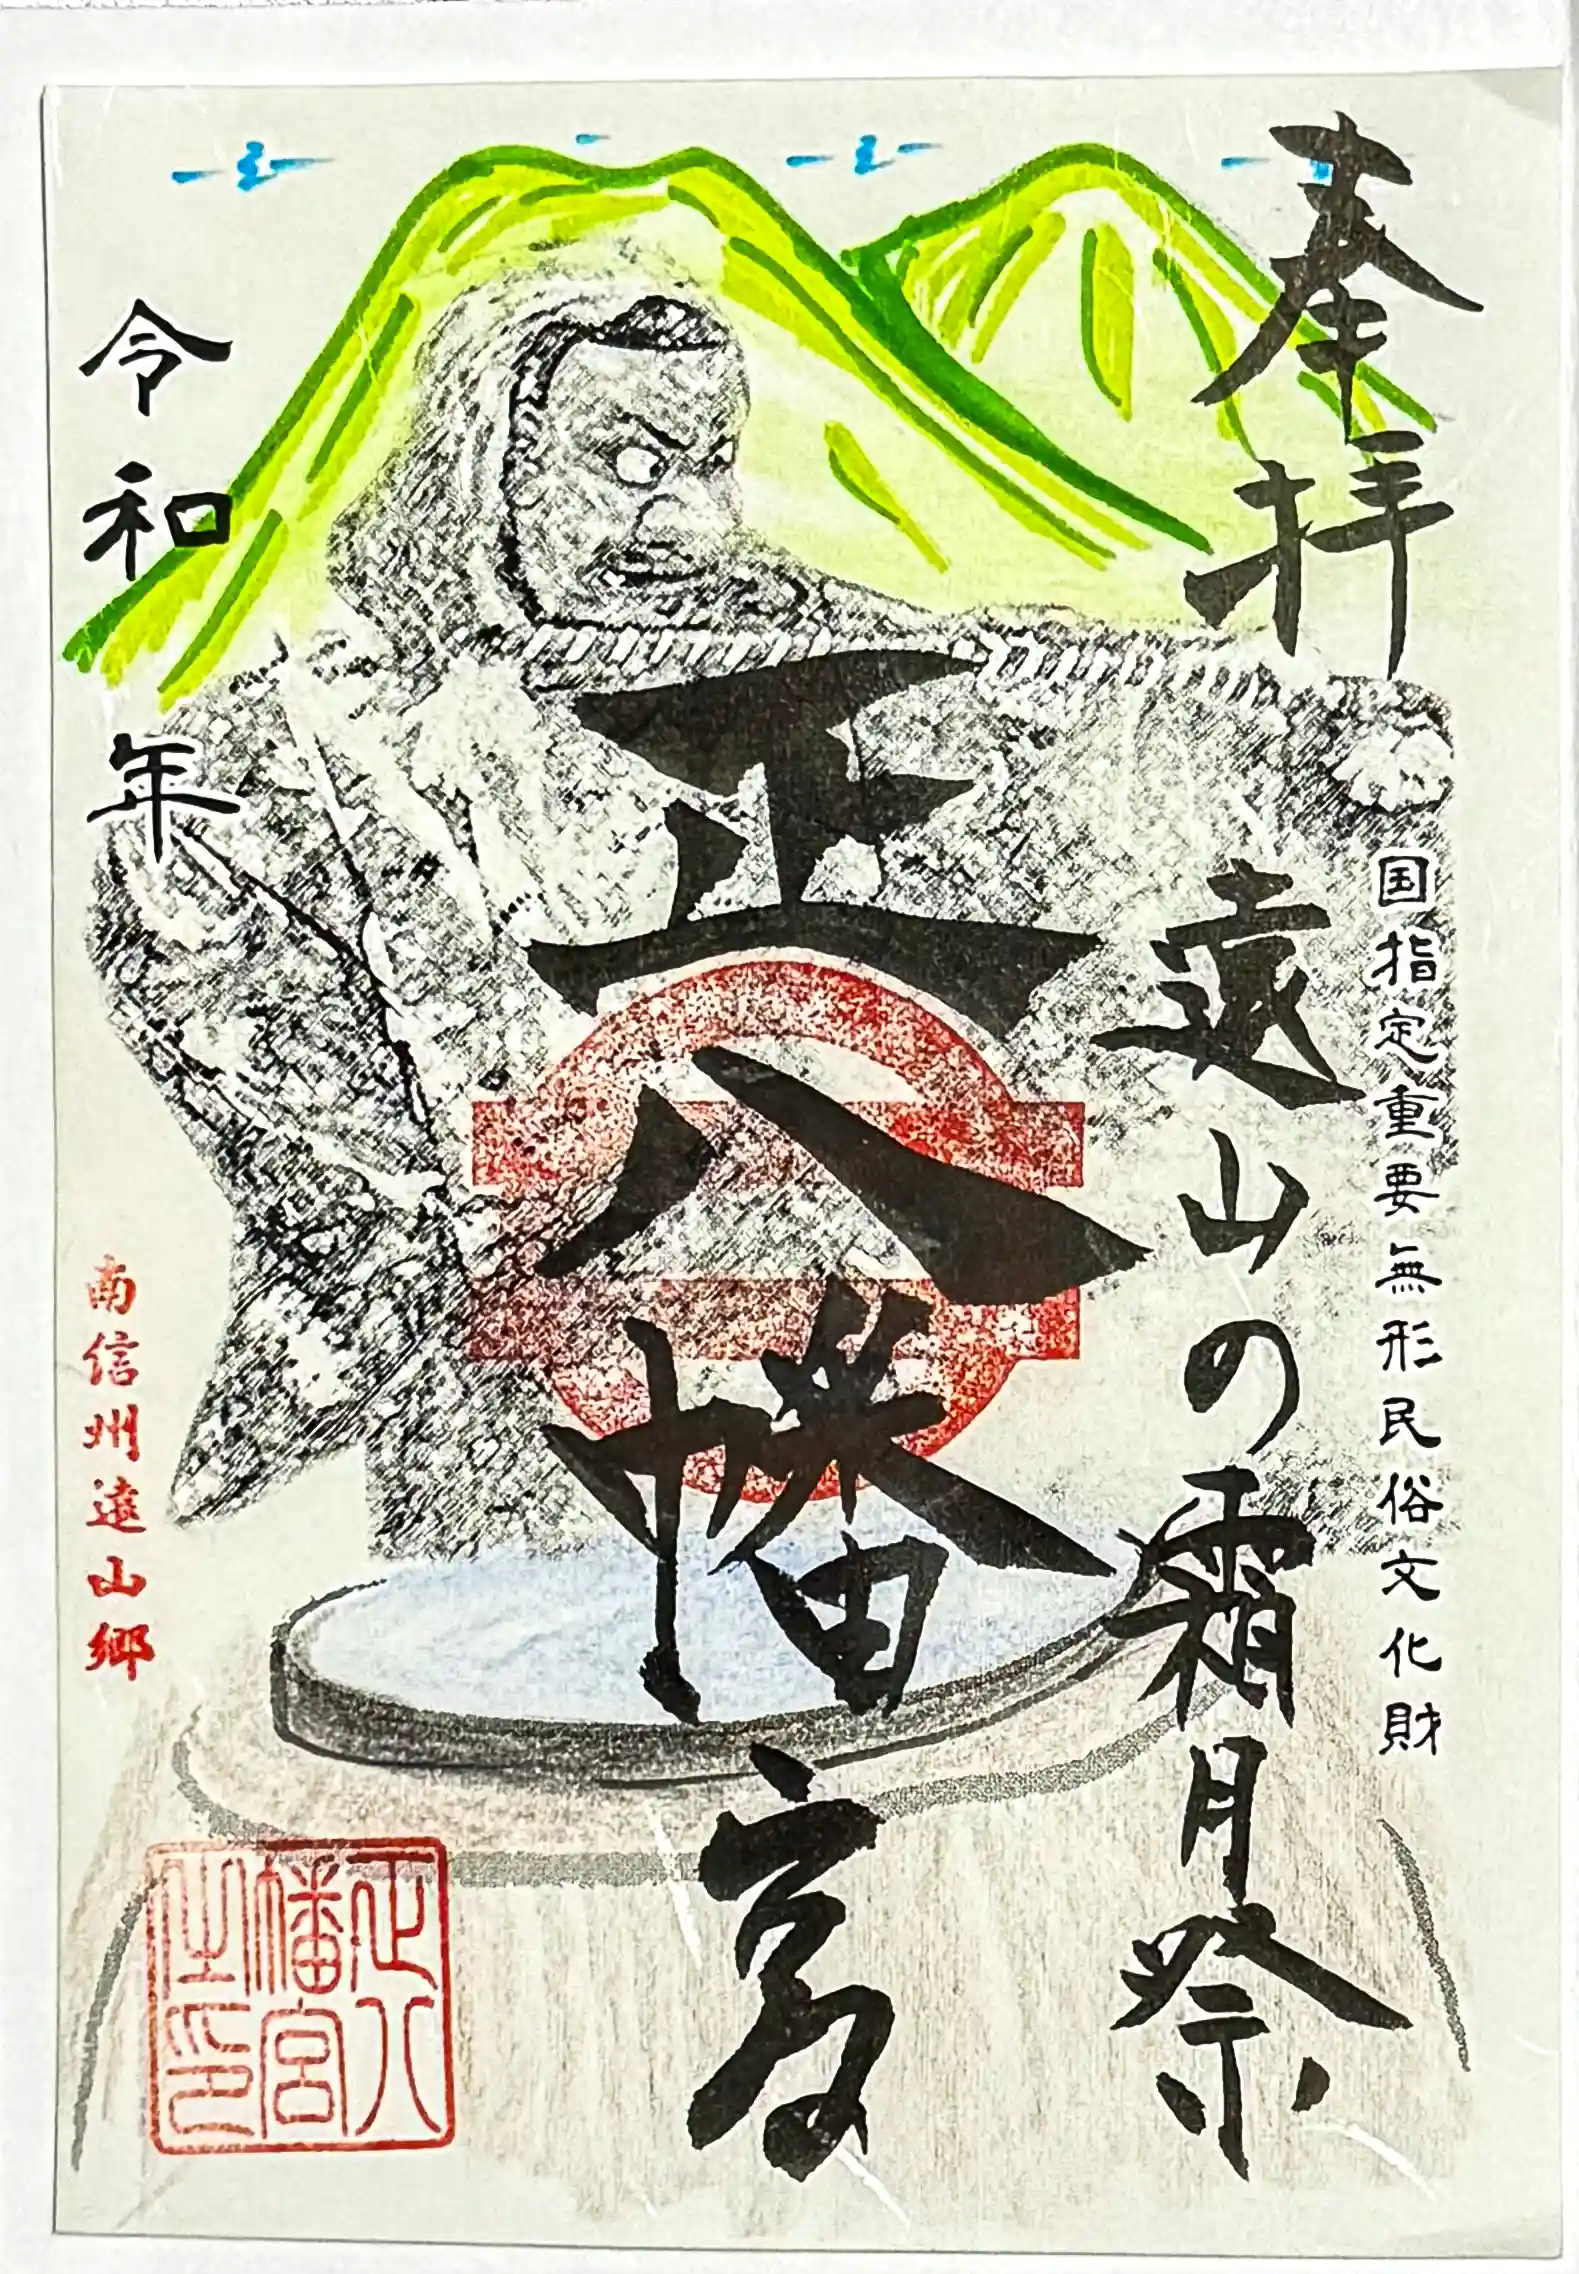 奉拝
国指定重要無形民俗文化財
遠山の霜月祭
正八幡宮
令和 年
南信州遠山郷
正八幡宮之印